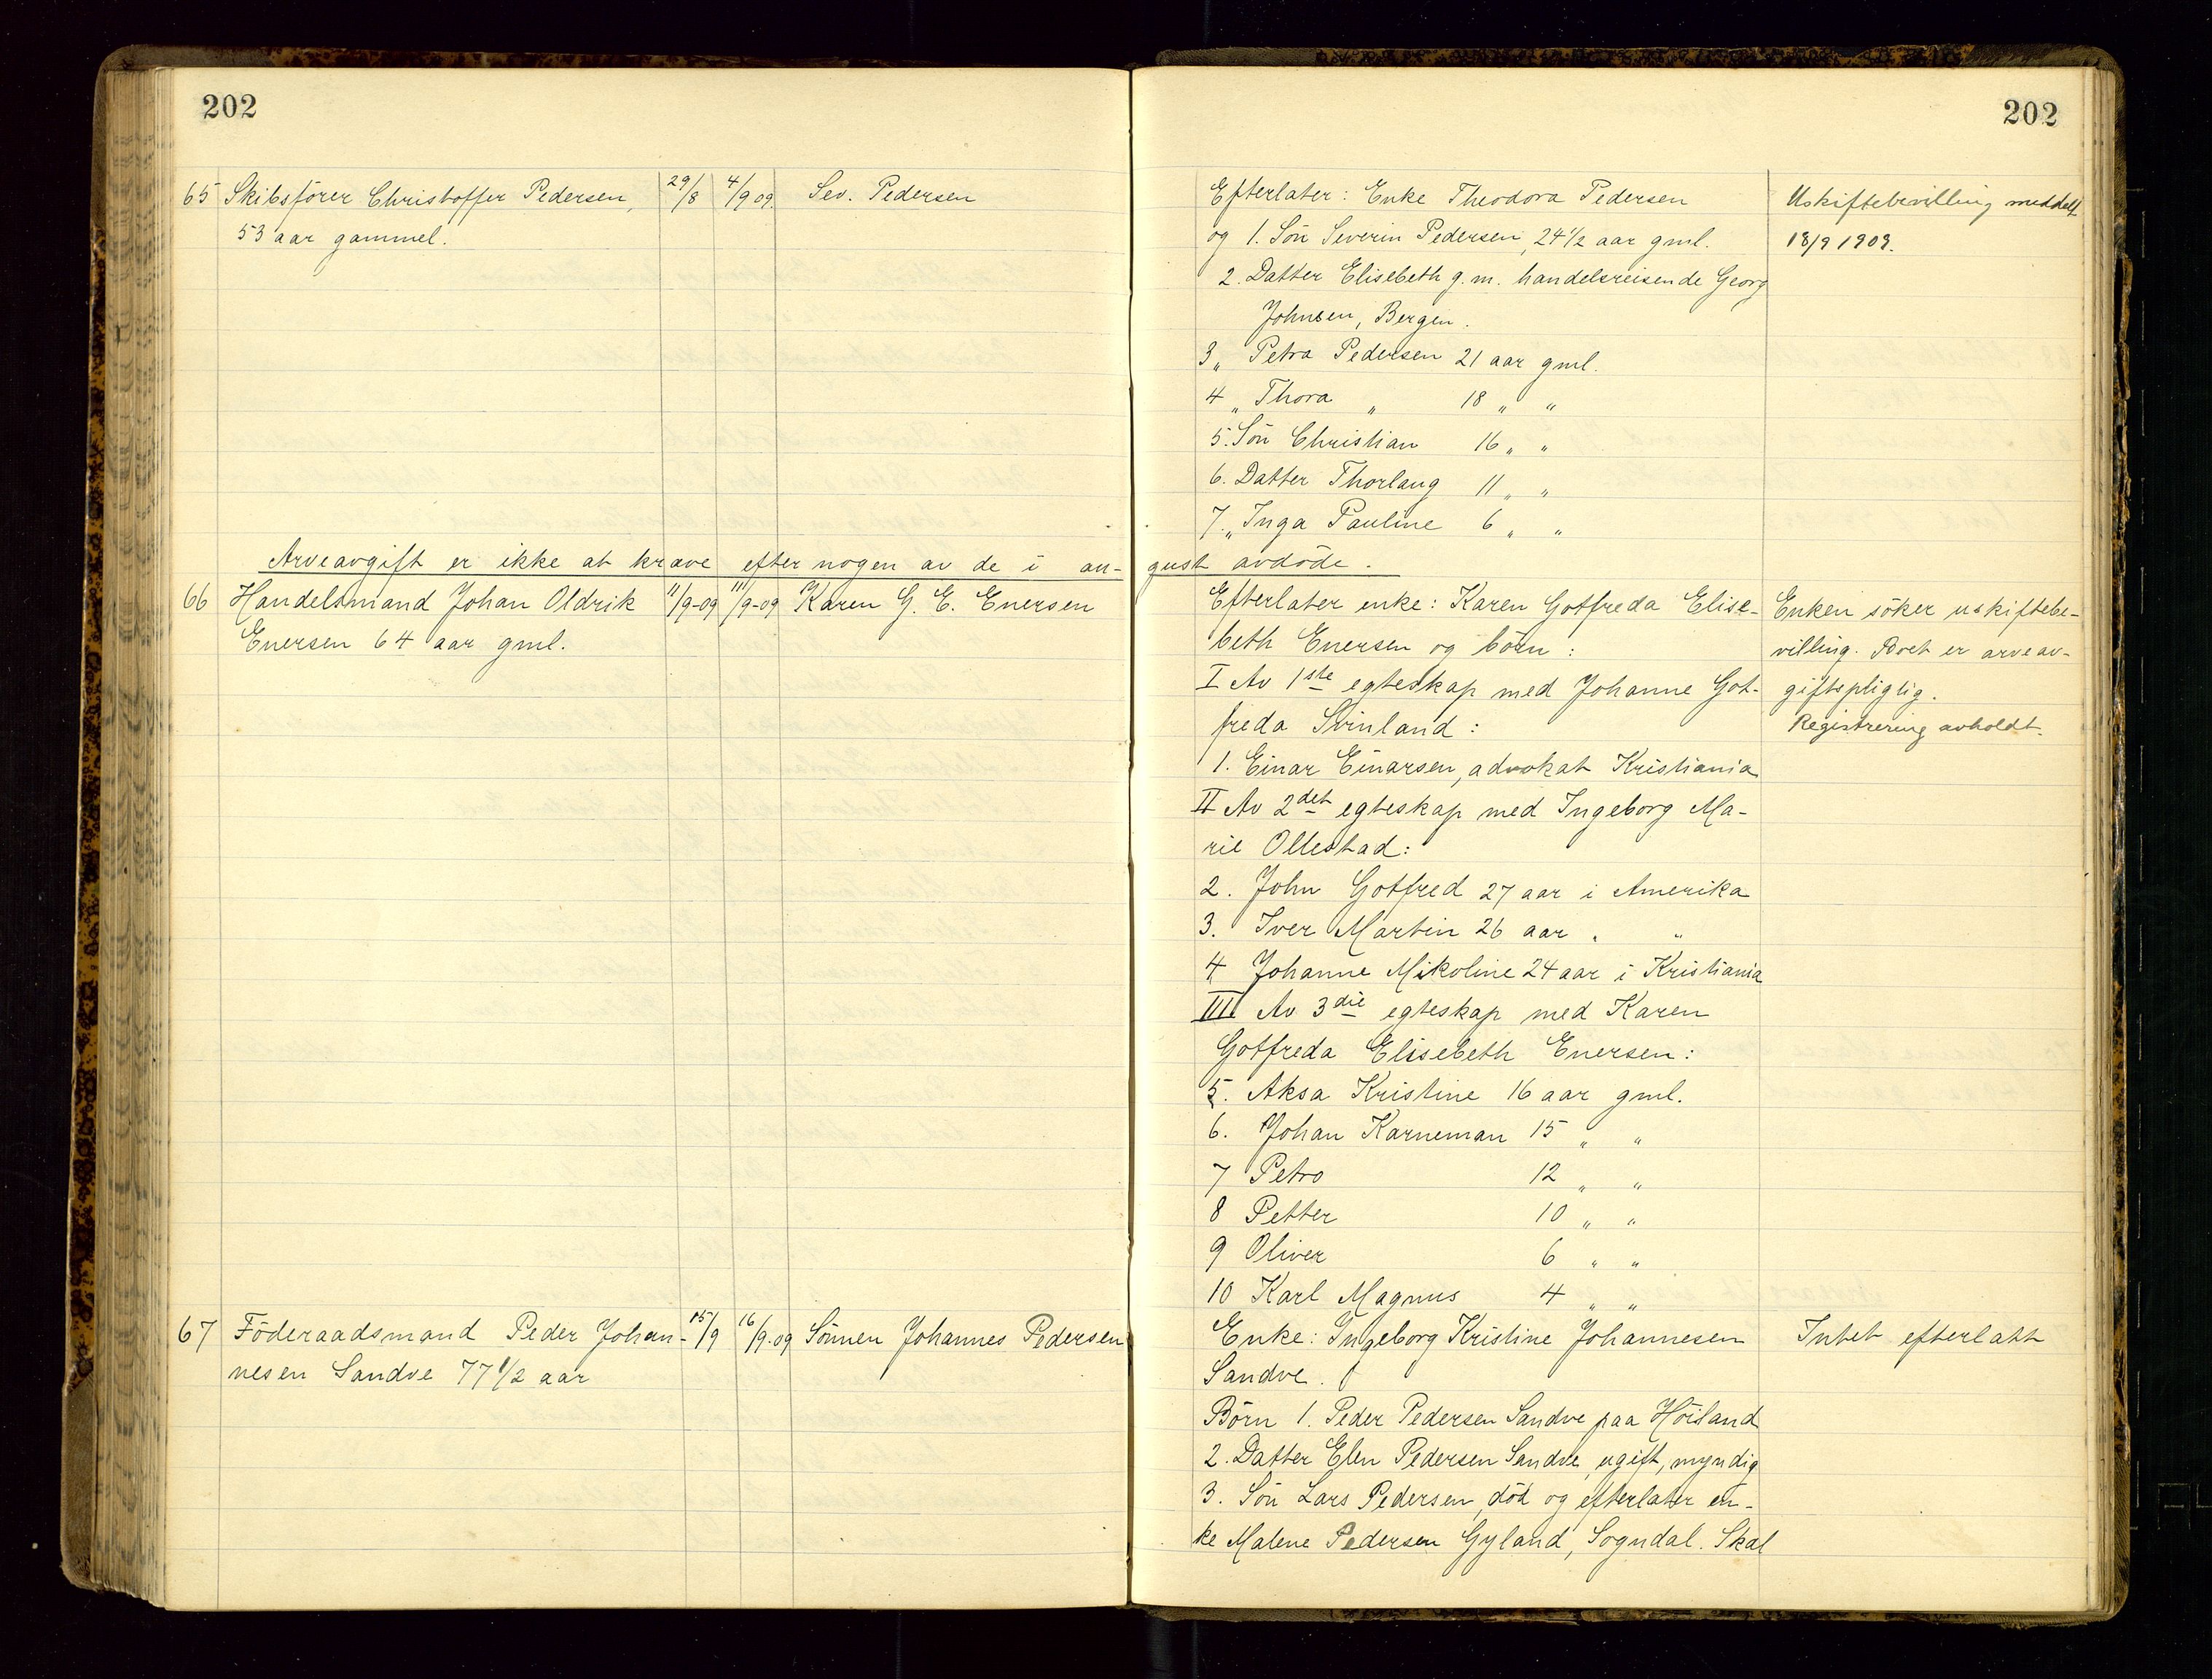 202
65 Skibsförer Christoffer Pedersen, 29/8 4/9 09. Sev. Pedersen
53 aar gammel.
Arveavgift er ikke at kræve efter nogen av de i au-
66 Handelsmand Johan Oldrik 11/9-09 11/9-09 Karen G. E. Enersen
Enersen 64 aar gml.
67 Föderaadsmand Peder Johan- 15/9 16/9-09 Sönnen Johannes Pedersen
nesen Sandve 77 1/2 aar
202
Efterlater: Enke Theodora Pedersen
og 1. Sön Severin Pedersen, 24 1/2 aar gml.
2. Datter Elisebeth g. m. handelsreisende Georg
Johnsen, Bergen.
3 „ Petra Pedersen 21 aar gml.
4 „ Thora „ 18 „ „
5. Sön Christian 16 „ „
6. Datter Thorlaug 11 „ „
7. „ Inga Pauline 6 „ „
gust avdöde.
Efterlater enke: Karen Gotfreda Elise-
beth Enersen og börn:
I Av 1ste egteskap med Johanne Got-
freda Svinland:
1. Einar Einarsen, advokat Kristiania
II Av 2det egteskap med Ingeborg Ma-
rie Ollestad:
2. John Gotfred 27 aar i Amerika
3. Iver Martin 26 aar „ „
4 Johanne Mikoline 24 aar i Kristiania
III Av 3die egteskap med Karen
Gotfreda Elisebeth Enersen:
5. Aksa Kristine 16 aar gml.
6. Johan Karneman 15 „ „
7 Petro 12 „ „
8 Petter 10 „ „
9 Oliver 6 „ „
10 Karl Magnus 4 „ „
Enke: Ingeborg Kristine Johannesen
Sandve.
Börn 1. Peder Pedersen Sandve paa Höiland
2. Datter Elen Pedersen Sandve, ugift, myndig
3. Sön Lars Pedersen, död og efterlater en-
ke Malene Pedersen Gyland, Sogndal. Skal
Uskiftebevilling meddelt
18/9 1909.
Enken söker uskiftebe-
villing. Boet er arveav-
giftspligtig.
Registrering avholdt.
Intet efterlatt